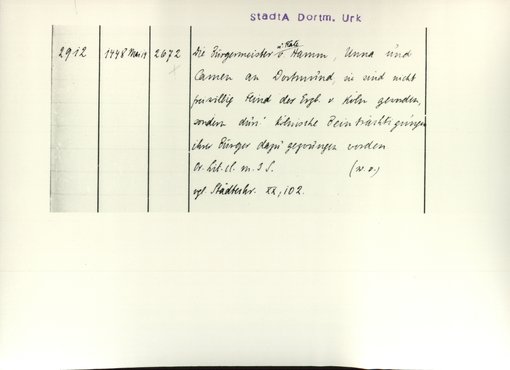 StadtA Dortm. Urk
2912 1448 Mai 14 2672 Die Bürgermeister u. Räte v. Hamm, Unna und
Camen an Dortmund, sie sind nicht
freiwillig Feind des Erzb. v. Köln geworden,
sondern durch kölnische Beinträchtigungen
ihrer Bürger dazu gezwungen worden.
Or. lit. cl. m. 3 S. (w. o.)
vgl. Städtechr. XX, 102.